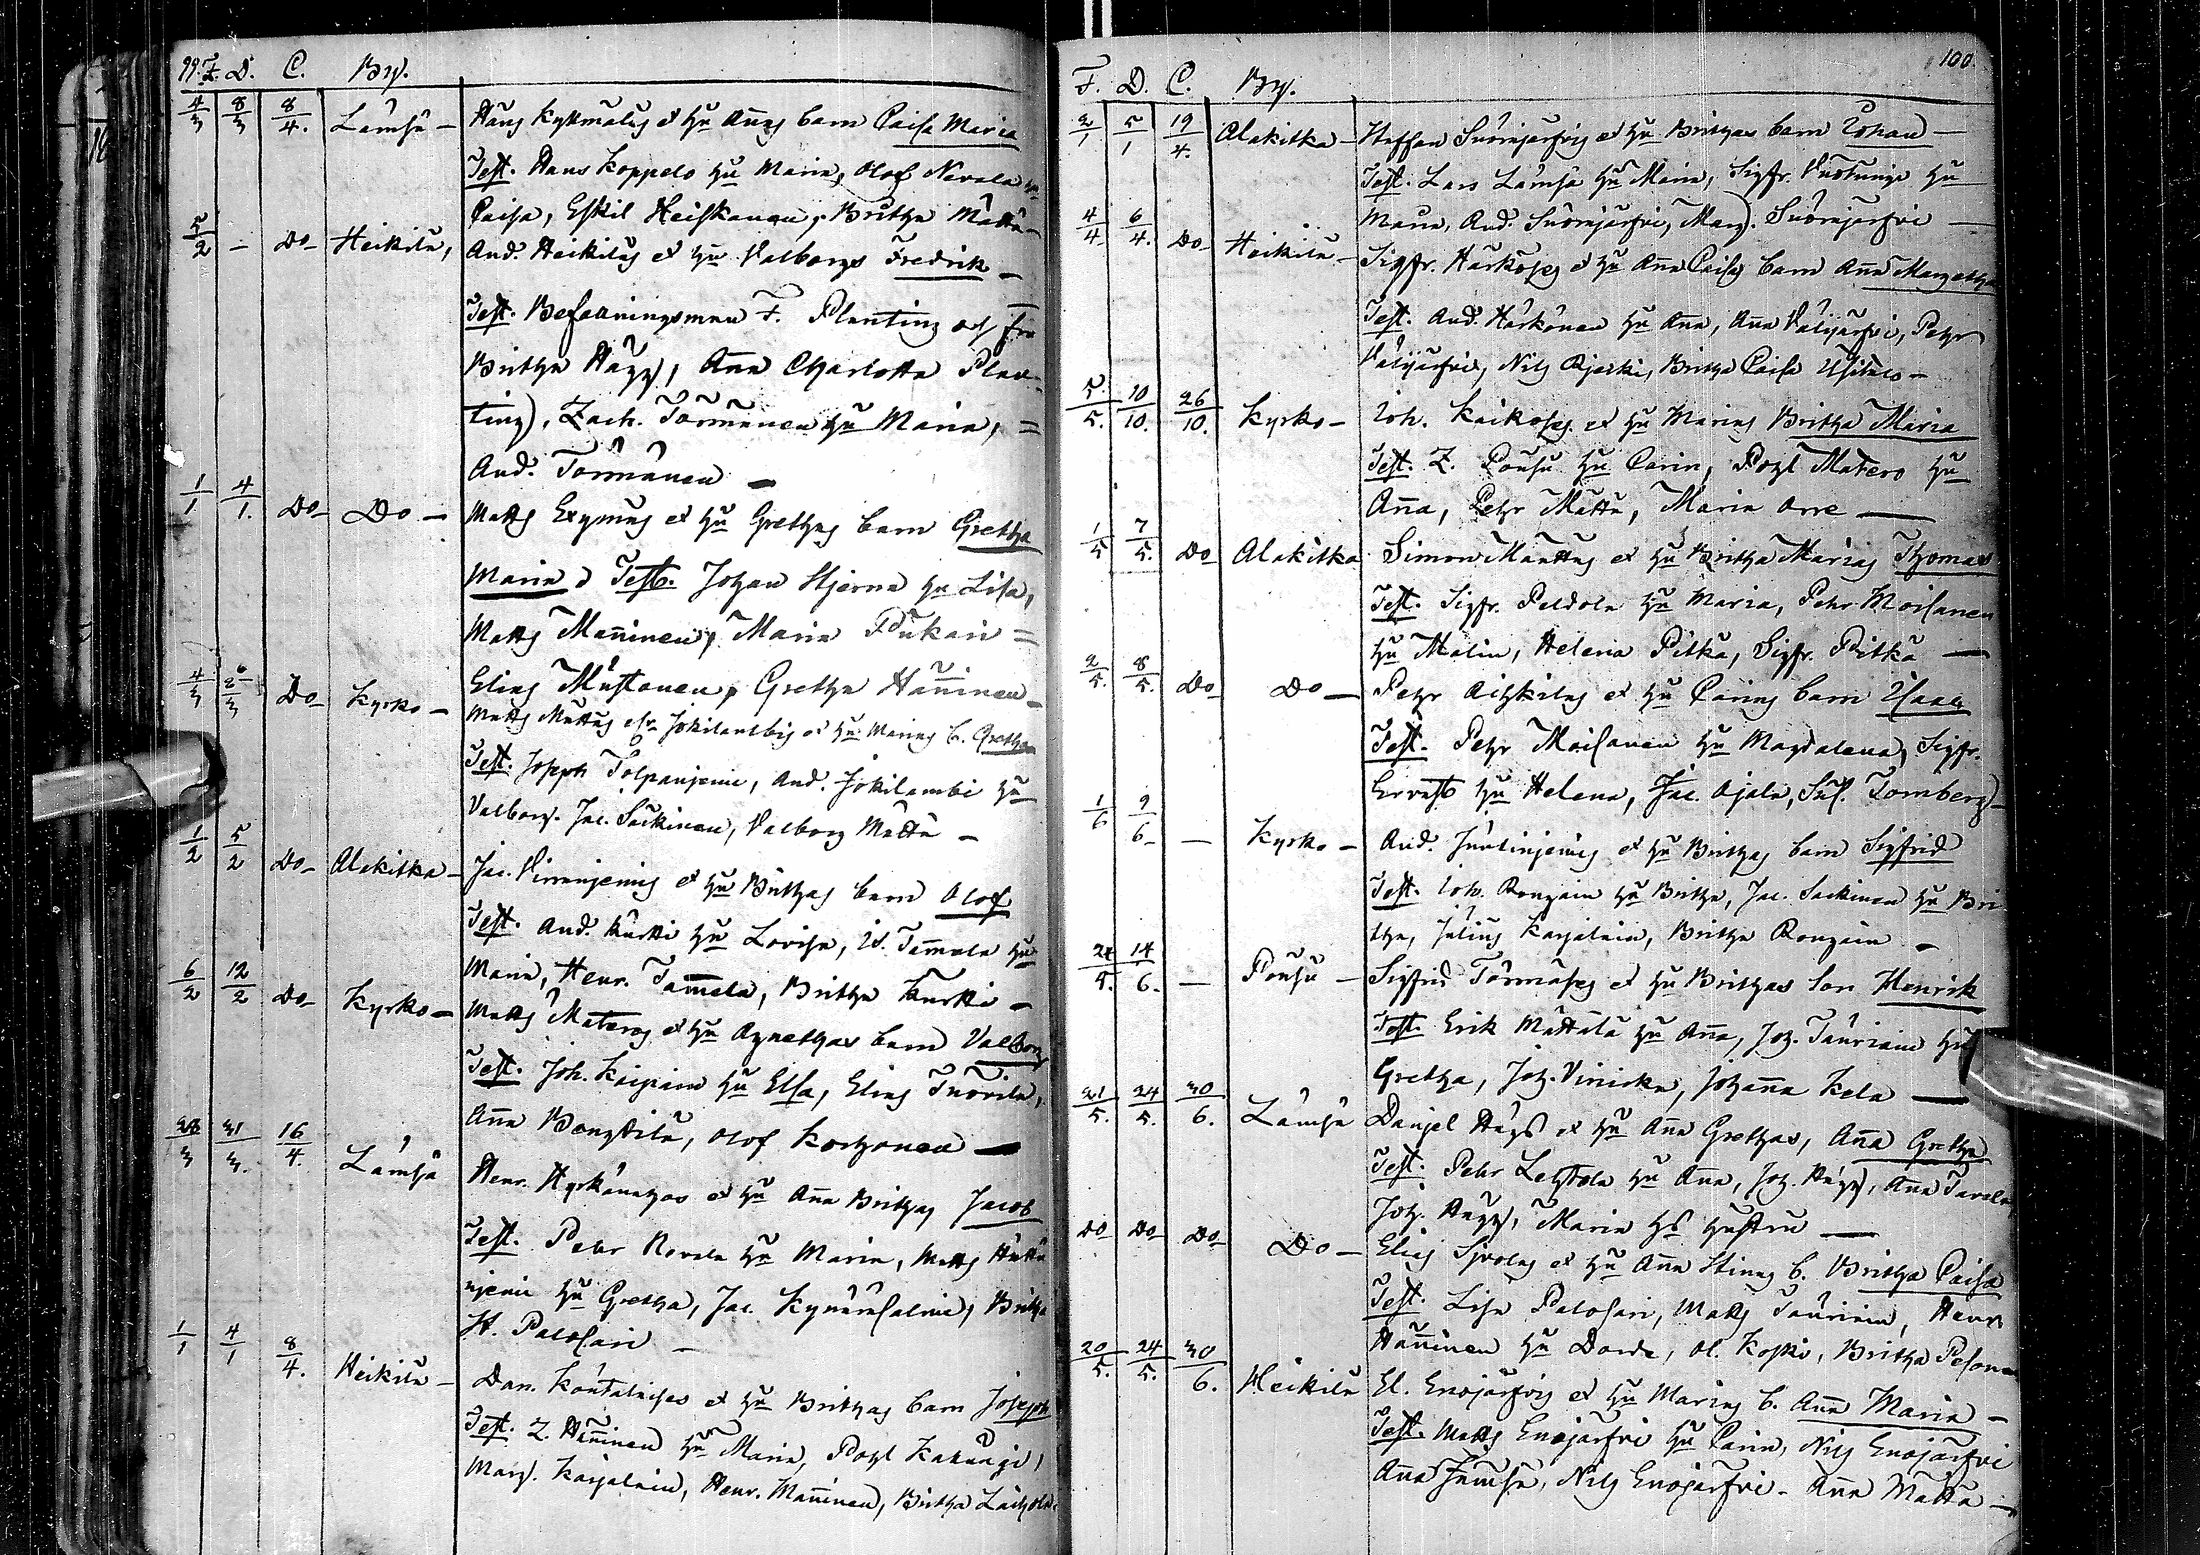 99. F. D. C. By.
4/3 8/3 8/4. Lämsä – Hans Kyllmäläs et hu Annas barn Caisa Maria
Test. Hans Koppelo hu Maria, Olof Nevala hu
Caisa, Eskil Heiskanen, Britha Mättä –
5/2 – Do Heikilä, And. Heikiläs et hu Valborgs Fredrik –
Test. Befallningsman F. Planting och fru
Britha Hägg, Anna Charlotta Plan-
ting, Zach. Törmänen hu Maria, =
And. Törmänen –
1/1 4/1. Do Do – Matts et hu Grethas barn Gretha
Maria Test. Johan Hjerna hu Lisa,
Matts Manninen, Maria Pukari =
Elias Mustonen, Gretha Hänninen –
4/3 Do Kyrko – Matts et hu Marias b. Gretha
Test. Joseph Tolpanjemi, And. Jokilambi hu
Valborg. Jac. Säckinen, Valborg Mättä –
1/2 5/2 Do Alakitka – Jac. et hu Brithas barn Olof
Test. And. Kurtti hu Lovisa, Is. Tammela hu
Maria, Henr. Tammela, Britha Kurtti –
6/2 12/2 Do Kyrko – Matts Materos et hu Agnethas barn Valborg
Test. Joh. Kaipain hu Elsa, Elias Tuovila,
Anna Bongdila, Olof Korhonen –
28/3 31/3. 16/4. Lämsä Henr. et hu Anna Brithas Jacob
Test. Pehr Nevala hu Maria, Matts
njemi hu Gretha, Jac. Kynsinsalmi, Britha
H. Palosari –
1/1 4/1 8/4. Heikilä – Dan. et hu Brithas barn Joseph
Test. Z. Hänninen hu Maria, Pohl
Marg. Karjalain, Henr. Manninen, Britha
100.
F. D. C. By.
2/1 5/1 19/4. Alakitka – Staffan Suönjärfvis et hu Brithas barn Johan –
Test. Lars Lämsä hu Maria, Sigfr. Vuotungi hu
Maria, And. Suönjärfvi, Marg. Suönjärfvi –
4/4 6/4. Do Heikilä – Sigfr. Härköses et hu Anna Caisas barn Anna Margetha
Test. And. Härkönen hu Anna, Anna Välijärfvi, Pehr
Välijärfvi, Nils Kjerki, Britha Caisa
5/5. 10/10. 26/10. Kyrko – Joh. Kaikoses et hu Marias Britha Maria
Test. Z. Pousu hu Carin, Pohl Matero hu
Anna, Pehr Mättä, Maria Orre –
1/5 7/5. Do Alakitka Simon Manttas et hu Britha Marias Thomas
Test. Sigfr. Peldola hu Maria, Pehr Moisanen
hu Malin, Helena Pitkä, Sigfr. Pitkä –
2/5. 8/5. Do Do – Pehr et hu Carins barn Isaac
Test. Pehr Moisanen hu Magdalena, Sigfr.
Ervasti hu Helena, Jac. Ojala, Sus. Tornberg –
1/6 9/6 – Kyrko – And. et hu Brithas barn Sigfrid
Test. Joh. Rongain hu Britha, Jac. Säckinen hu Bri
tha, Julius Karjalain, Britha Rongain –
24/5. 14/6. – Pousu – Sigfrid Törmäses et hu Brithas son Henrik
Test. Erik Mattila hu Anna, Joh. Tauriain hu
Gretha, Joh. Virnicka, Johanna Kela –
21/5. 24/5. 30/6. Lämsä Daniel Häggs et hu Anna Grethas, Anna Gretha
Test. Pehr Lehtola hu Anna, Joh. Hägg, Anna Tavela
Joh. Hägg, Maria hs hustru –
Do Do Do Do – Elias et hu Anna Stinas b. Britha Caisa
Test. Lisa Palosari, Matts Tauriain, Henr.
Hänninen hu Dorde, Ol. Koski, Britha Pesonen
20/5. 24/5. 30/6. Heikilä El. Enojärfvis et hu Marias b. Anna Maria –
Test. Matts Enojärfvi hu Carin, Nils Enojärfvi
Anna Jämsä, Nils Enojärfvi – Anna Mätta –